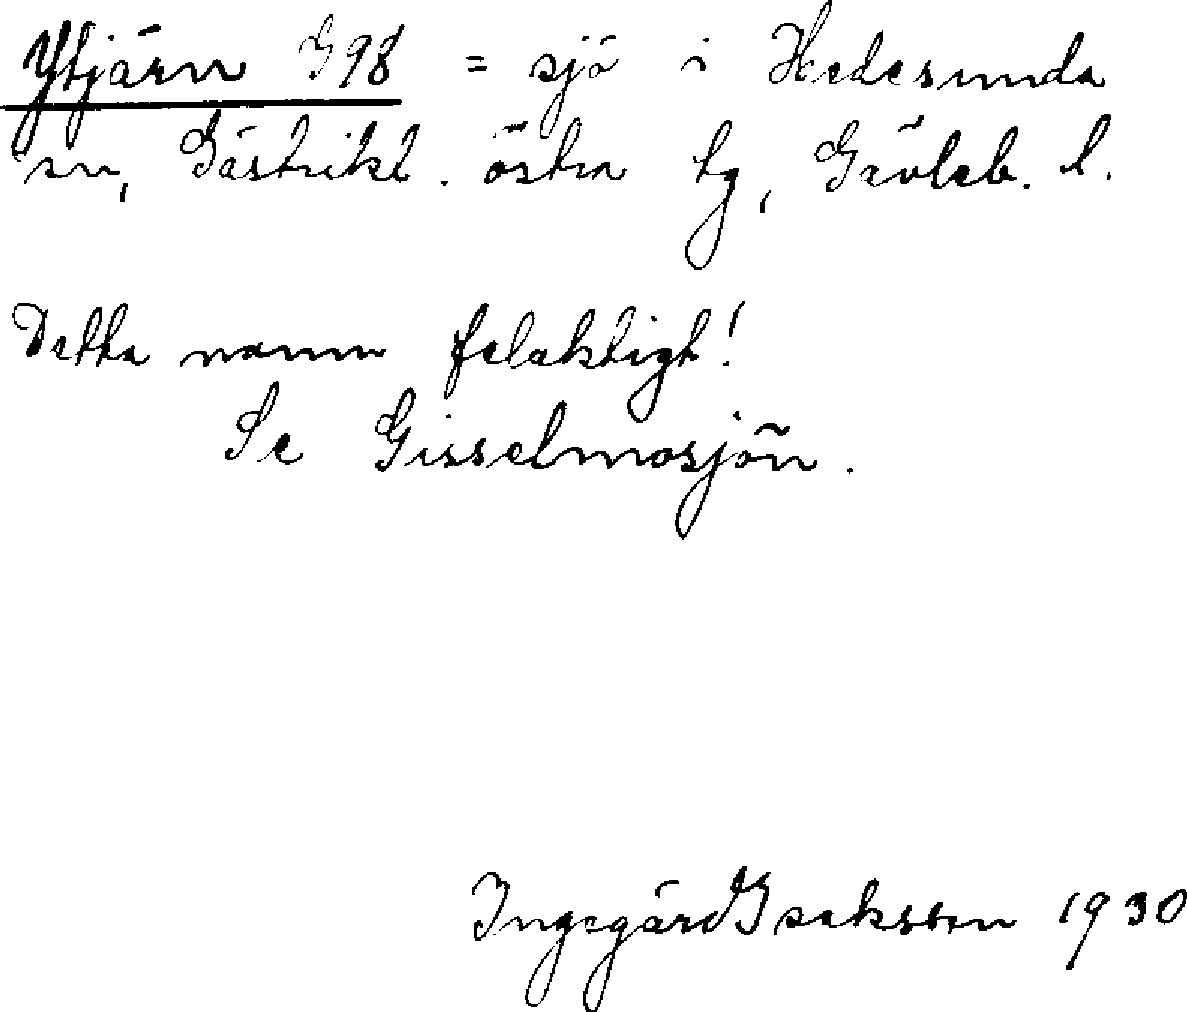 Ytjärn G98 = sjö i Hedesunda
sn, Gästrikl. östra tg, Gävleb. l.
Detta namn felaktigt!
Se Gisselmosjön.
Ingegärd Isaksson 1930